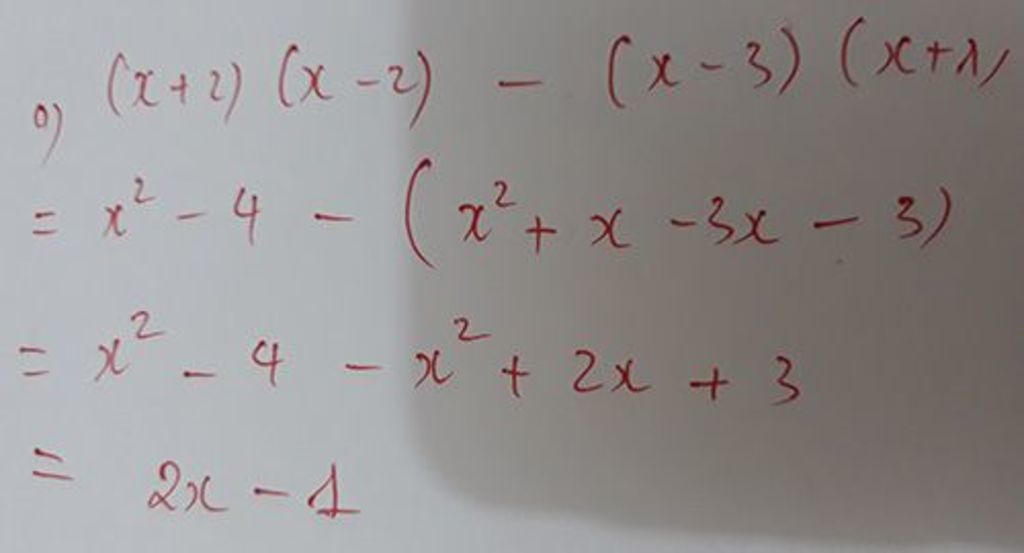 a) (x+2) (x-2) - (x-3) (x+1)
= x² - 4 - (x² + x - 3x - 3)
= x² - 4 - x² + 2x + 3
= 2x - 1